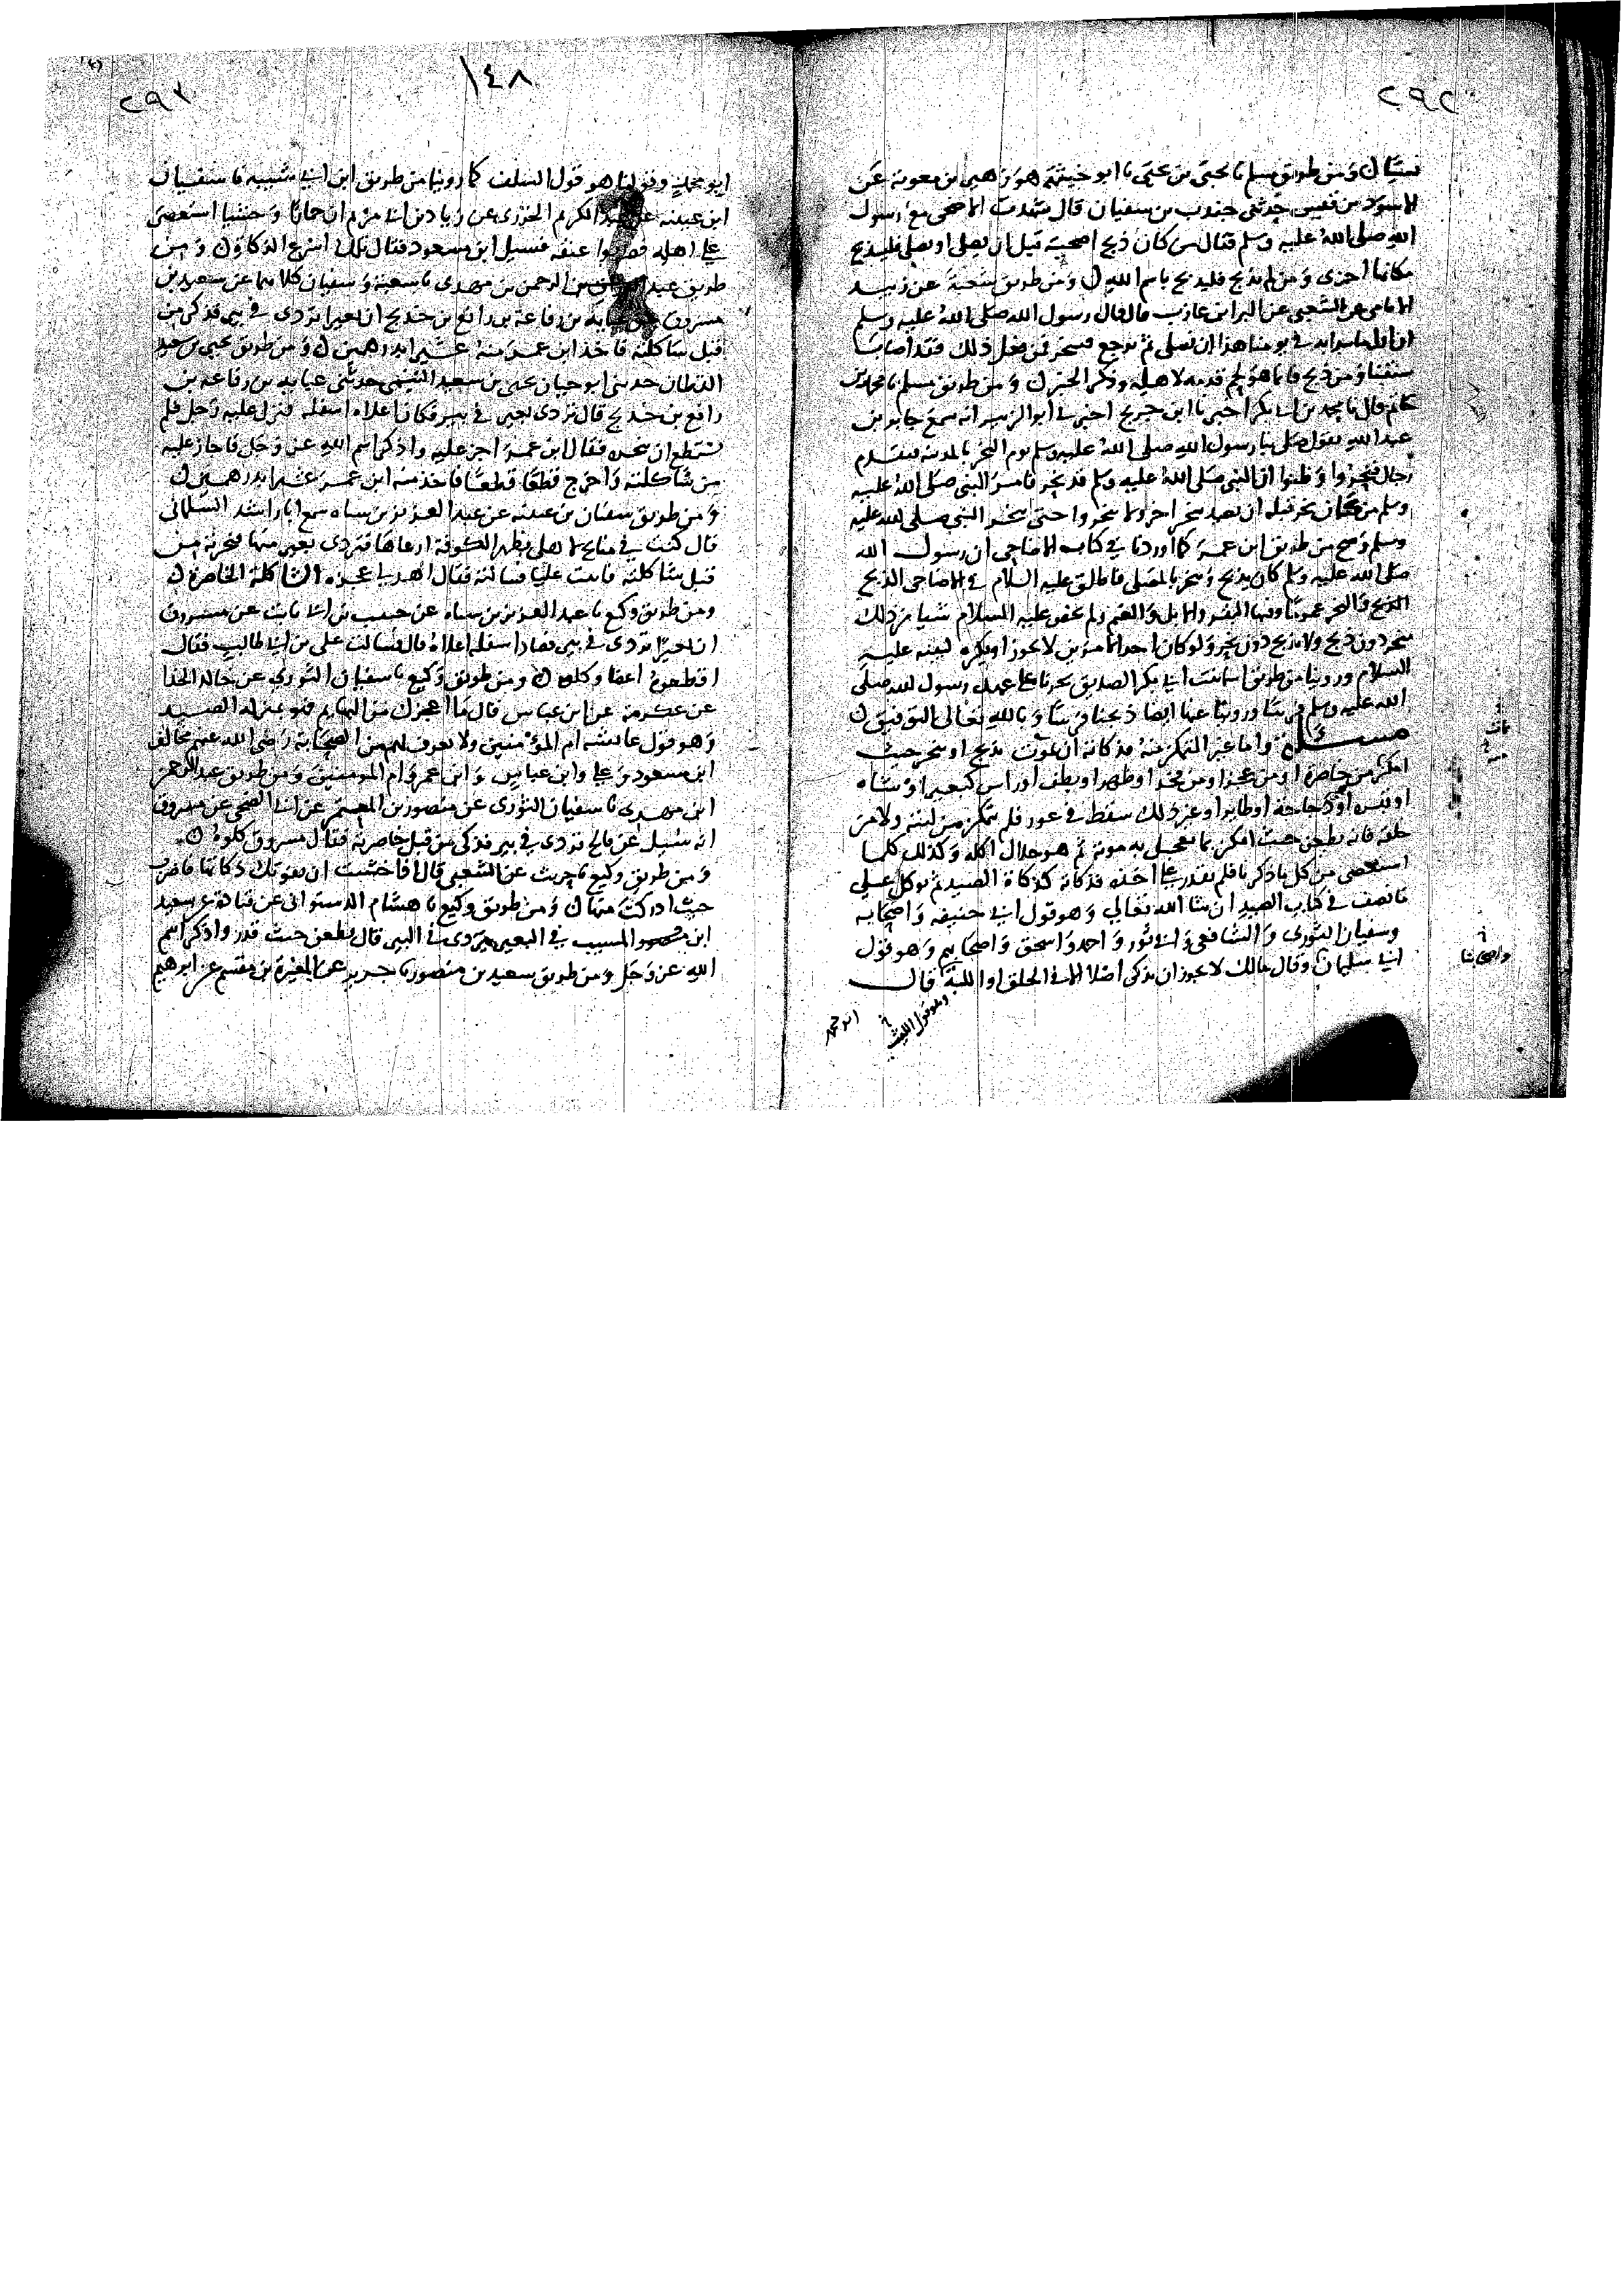 ٢٩٢
نسيان ومن طريق مسلم نا يحيى بن يحيى نا ابو خيثمة هو زهير بن معوية عن
الاسود بن قيس حدثني جندب بن سفيان قال شهدت الاضحى مع رسول
الله صلى الله عليه وسلم فقال من كان ذبح اضحيته قبل ان يصلي او نصلي فليذبح
مكانها اخرى ومن لم يذبح فليذبح باسم الله ومن طريق شعبة عن زبيد
الايامي عن الشعبي عن البرا بن عازب قال قال رسول الله صلى الله عليه وسلم
ان اول ما نبدا به في يومنا هذا ان نصلي ثم نرجع فننحر فمن فعل ذلك فقد اصاب
سنتنا ومن ذبح فانما هو لحم قدمه لاهله وذكر الخبر ومن طريق مسلم نا محمد بن
حاتم قال نا محمد بن بكر اخبرنا ابن جريج اخبرني ابو الزبير انه سمع جابر بن
عبد الله يقول صلى بنا رسول الله صلى الله عليه وسلم يوم النحر بالمدينة فتقدم
رجال فنحروا وظنوا ان النبي صلى الله عليه وسلم قد نحر فامر النبي صلى الله عليه
وسلم من كان نحر قبله ان يعيد بنحر اخر ولا ينحروا حتى ينحر النبي صلى الله عليه
وسلم وصح من طريق ابن عمر كما اوردنا في كتاب الاضاحي ان رسول الله
صلى الله عليه وسلم كان يذبح وينحر بالمصلى فاطلق عليه السلام في الاضاحي الذبح
والنحر عموما وفيها البقر والابل والغنم ولم يخص عليه السلام شيا من ذلك
بنحر دون ذبح ولا بذبح دون نحر ولو كان احد الامرين لا يجوز او يكره لبينه عليه
السلام وروينا من طريق اسما بنت ابي بكر الصديق نحرنا على عهد رسول الله صلى
الله عليه وسلم فرسا وروينا عنها ايضا ذبحنا فرسا وبالله تعالى التوفيق
مسئلة واما غير المتمكن منه فذكاته ان يموت بذبح او بنحر حيث
امكن من خاصرة او من عجز او من فخذ او ظهر او بطن او راس كبعير او شاه
او بقرة او دجاجة او طاير او غير ذلك سقط في غور فلم يتمكن من لبته ولا من
حلقه فانه يطعن حيث امكن بما يعجل به موته ثم هو حلال اكله وكذلك كل ما
استعصى من كل ما ذكرنا فلم يقدر على اخذه فذكاته كذكاة الصيد ثم يوكل على
ما نصف في كتاب الصيد ان شا الله تعالى وهو قول ابي حنيفه واصحابه
وسفيان الثوري والشافعي وابي ثور واحمد واسحق واصحابهم وهو قول
ابي سليمان وقال مالك لا يجوز ان يذكى اصلا الا في الحلق او اللبة قال
واصحابنا
وهو قول الليث
ابو محمد
١٤٨
٢٩٣
ابو محمد وقولنا هو قول السلف كما روينا من طريق ابن ابي شيبه نا سفيان
ابن عيينه عن عبد الكريم الجزري عن زياد بن ابي مريم ان حمارا وحشيا استعصى
على اهله فضربوا عنقه فسيل ابن مسعود فقال تلك اسرع الذكاة ومن
طريق عبد الرحمن بن مهدي نا شعبة وسفيان كلاهما عن سعيد بن
مسروق عن عباية بن رفاعة بن رافع بن خديج ان بعيرا تردى في بير فذكي من
قبل شاكلته فاخذ ابن عمر منه عشيرا بدرهمين ومن طريق يحيى بن سعيد
القطان حدثني ابو حيان يحيى بن سعيد التيمي حدثني عباية بن رفاعة بن
رافع بن خديج قال تردى بعير في بير فكان اعلاه اسفله فنزل عليه رجل فلم
يستطع ان ينحره فقال ابن عمر اجز عليه واذكر اسم الله عز وجل فاجاز عليه
من شاكلته واخرج قطعا قطعا فاخذ منه ابن عمر عشيرا بدرهمين
ومن طريق سفيان بن عيينه عن عبد العزيز بن سياه سمع ابا راشد السلماني
قال كنت في منايح لاهلي بظهر الكوفة ارعاها فتردى بعير منها فنحرته من
قبل شاكلته فاتيت عليا فسالته فقال اهد لي عجزه الشاكلة الخاصرة
ومن طريق وكيع نا عبد العزيز بن سياه عن حبيب بن ابي ثابت عن مسروق
ان بعيرا تردى في بير فصار اسفله اعلاه قال فسالت علي بن ابي طالب فقال
اقطعوه اعضا وكلوه ومن طريق وكيع نا سفيان الثوري عن خالد الحذا
عن عكرمة عن ابن عباس قال ما اعجزك من البهايم فهو بمنزلة الصيد
وهو قول عائشه ام المؤمنين ولا يعرف لهم من الصحابة رضي الله عنهم مخالف
ابن مسعود وعلي وابن عباس وابن عمر وام المومنين ومن طريق عبد الرحمن
ابن مهدي نا سفيان الثوري عن منصور بن المعتمر عن ابي الضحى عن مسروق
انه سئل عن قالح تردى في بير فذكي من قبل خاصرته فقال مسروق كلوه
ومن طريق وكيع نا حريث عن الشعبي قال اذا خشيت ان يفوتك ذكاتها فاضرب
حيث ادركت منها ومن طريق وكيع نا هشام الدستوائي عن قتادة عن سعيد
ابن المسيب في البعير يتردى في البير قال يطعن حيث قدر واذكر اسم
الله عز وجل ومن طريق سعيد بن منصور نا جرير عن المغيرة بن مقسم عن ابرهيم